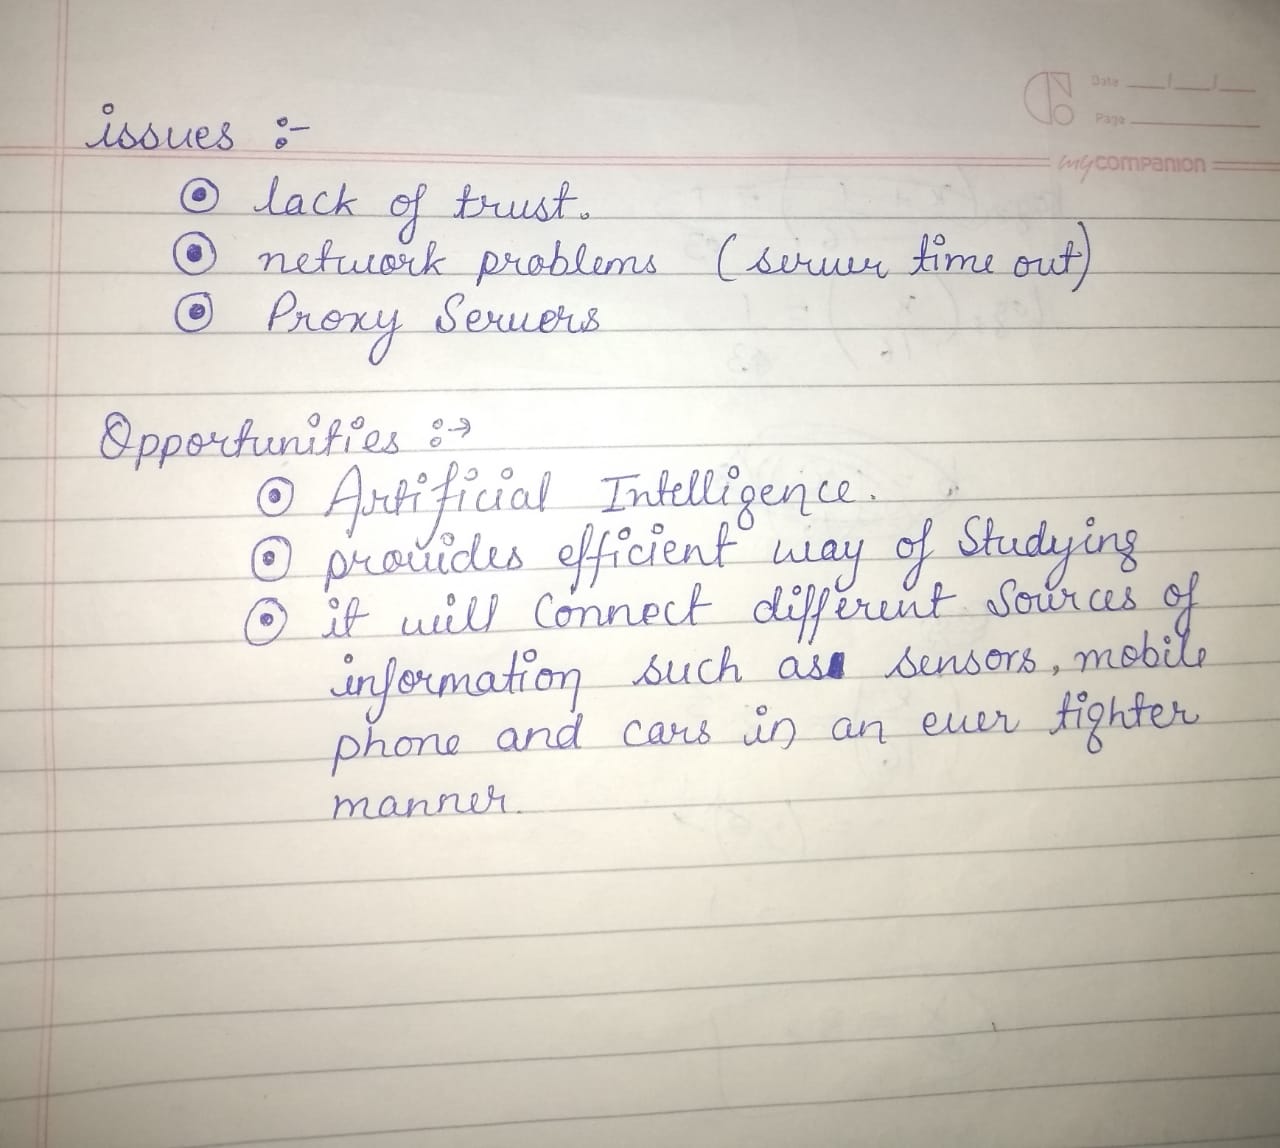 Date
Page
mycompanion
issues :-
lack of trust.
network problems (server time out)
Proxy Servers
Opportunities :→
Artificial Intelligence.
provides efficient way of Studying
it will Connect different Sources of
information such as sensors, mobile
phone and cars in an ever tighter
manner.